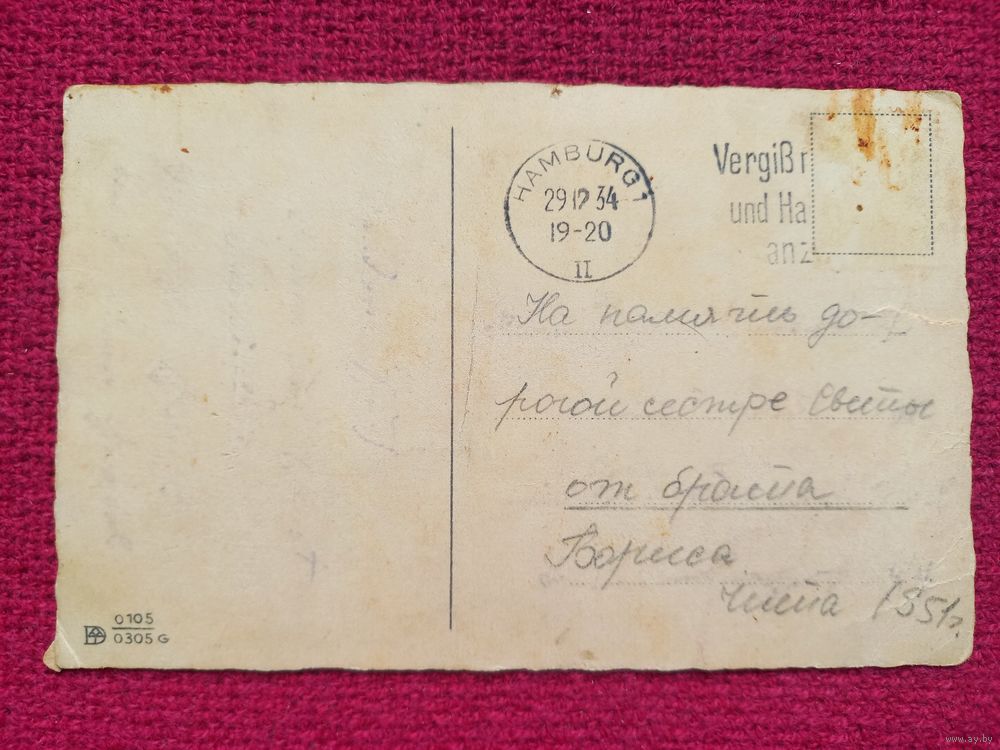 HAMBURG 1
29 12 34
19-20
II
Vergiß
und Ha
anz
На память до-
рогой сестре Светы
от брата
Бориса
Чита 1951г.
0105
0305 G
www.ay.by